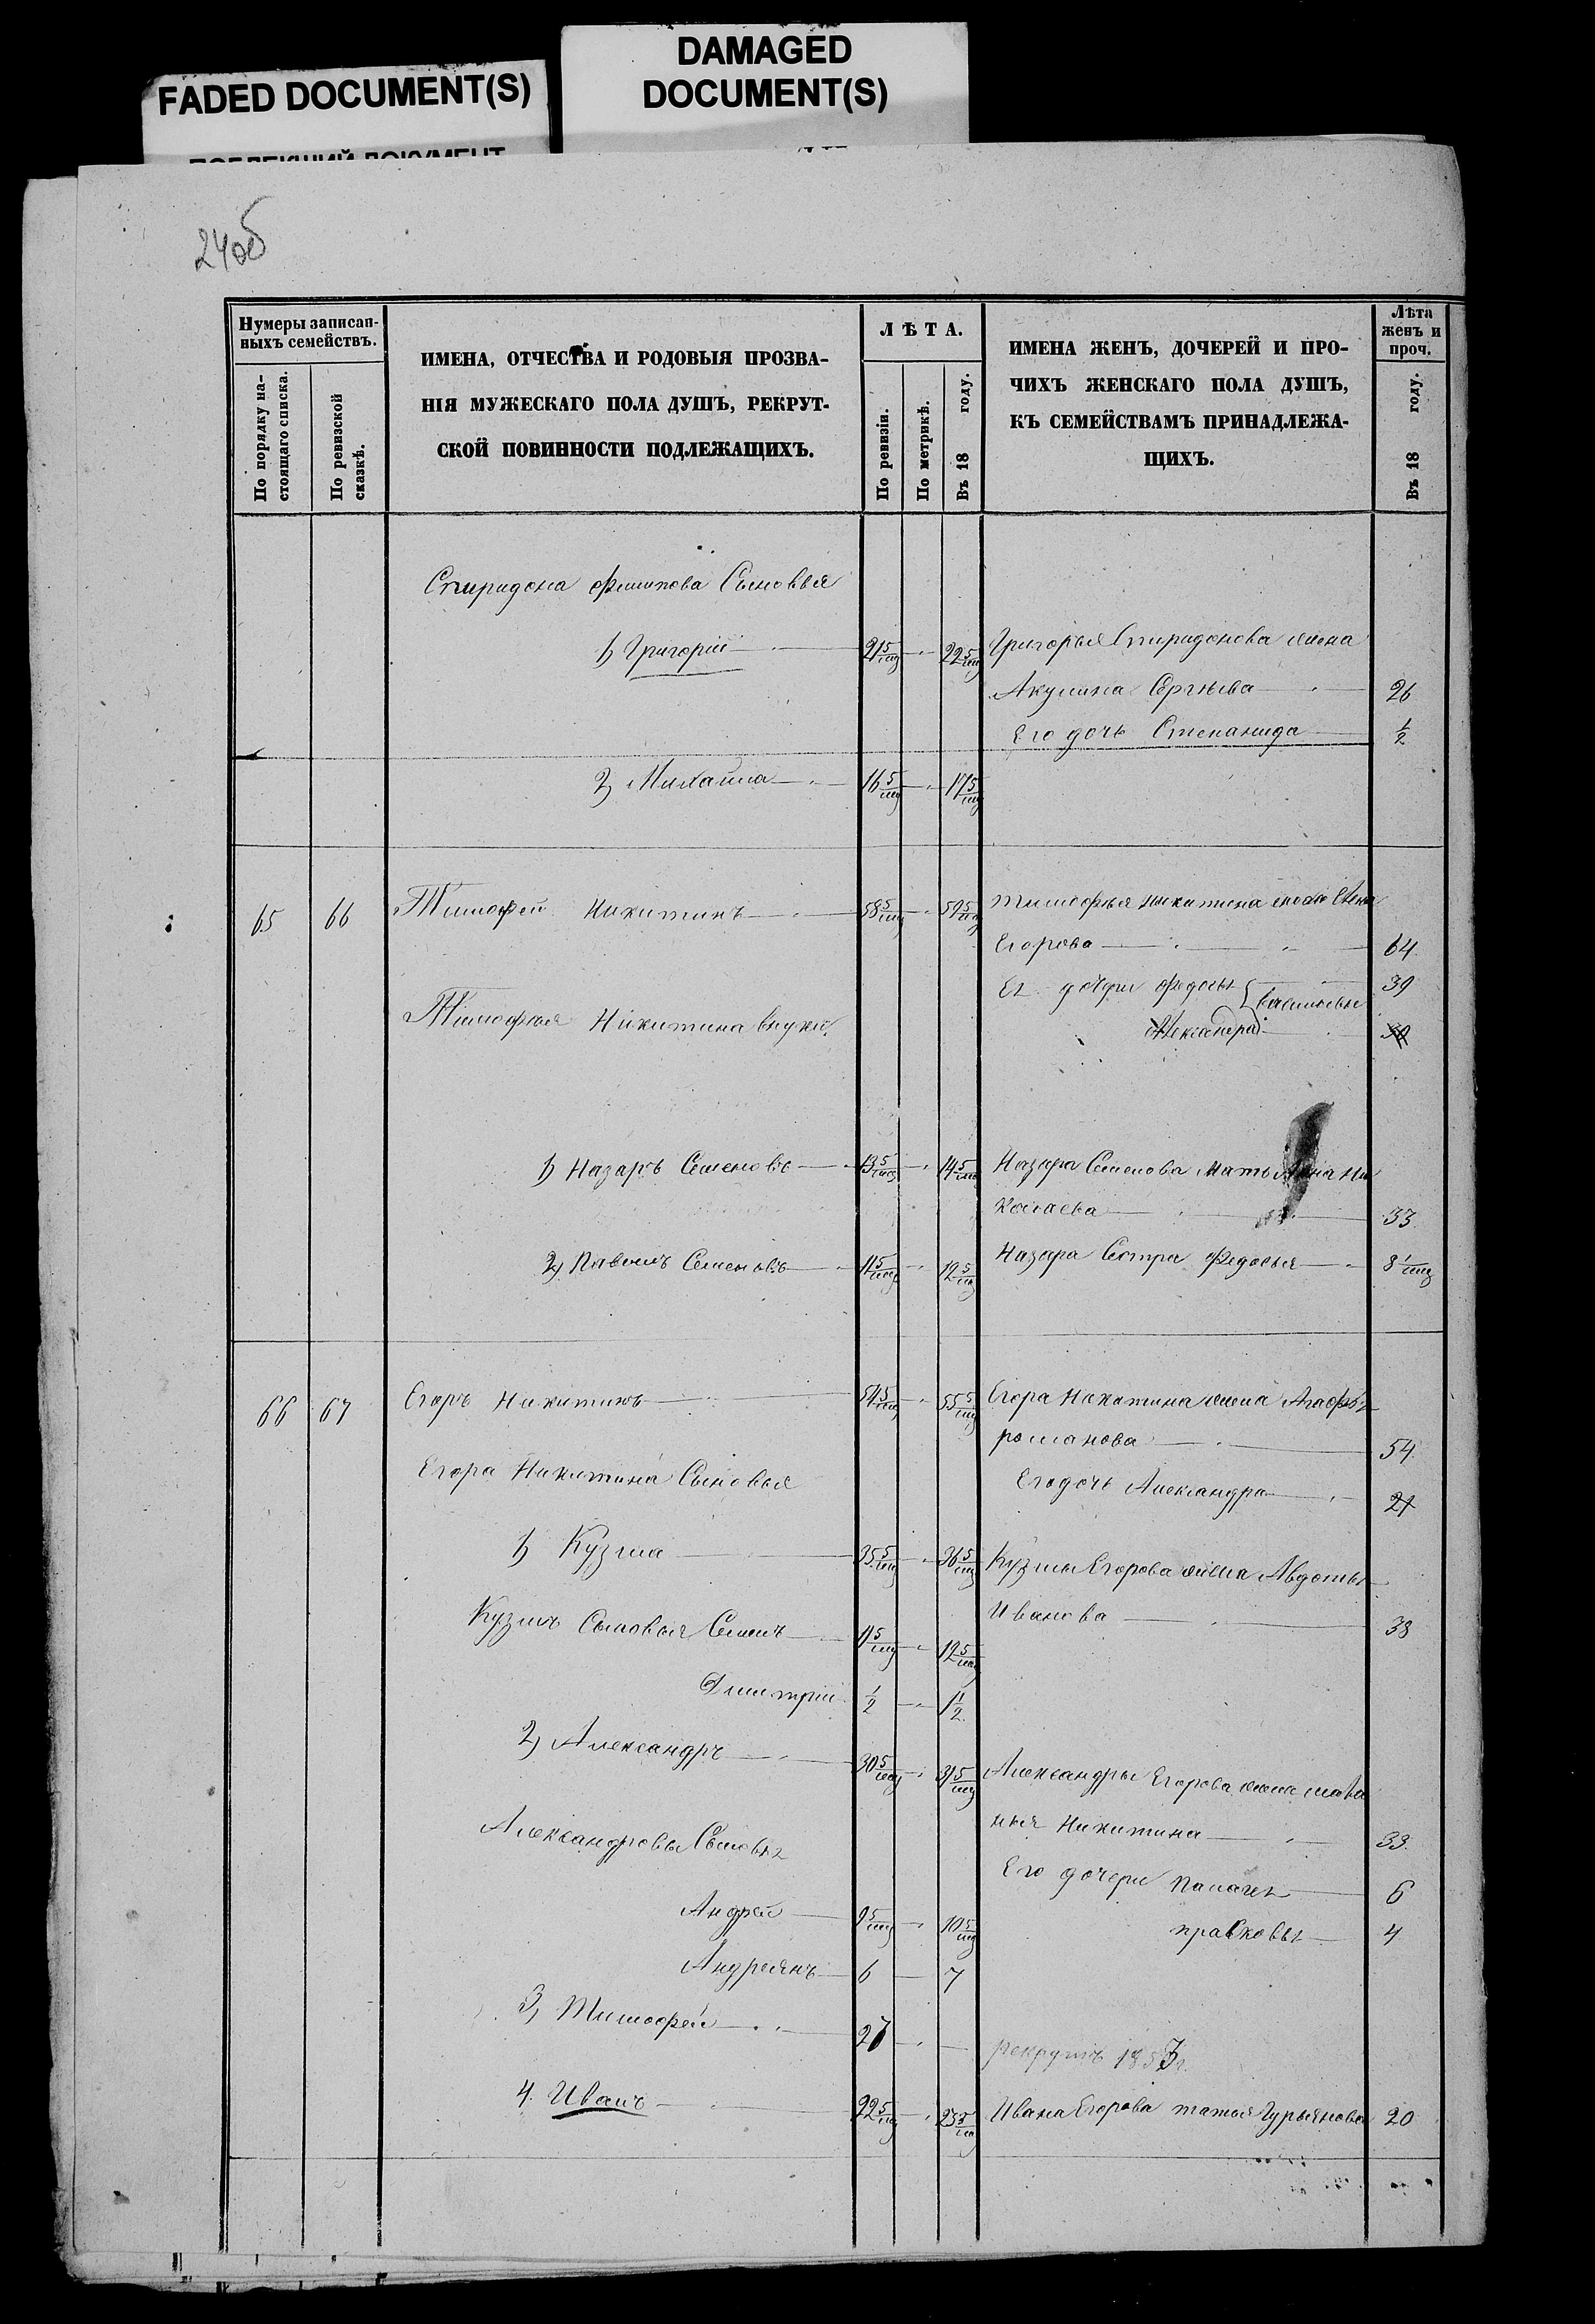 FADED DOCUMENT(S)
DAMAGED
DOCUMENT(S)
24об
Нумеры записан-
ныхъ семействъ.
По порядку на-
стоящаго списка.
По ревизской
сказкѣ.
ИМЕНА, ОТЧЕСТВА И РОДОВЫЯ ПРОЗВА-
НІЯ МУЖЕСКАГО ПОЛА ДУШЪ, РЕКРУТ-
СКОЙ ПОВИННОСТИ ПОДЛЕЖАЩИХЪ.
ЛѢТА.
По ревизіи.
По метрикѣ.
Въ 18 году.
ИМЕНА ЖЕНЪ, ДОЧЕРЕЙ И ПРО-
ЧИХЪ ЖЕНСКАГО ПОЛА ДУШЪ,
КЪ СЕМЕЙСТВАМЪ ПРИНАДЛЕЖА-
ЩИХЪ.
Лѣта
женъ и
проч.
Въ 18 году.
Спиридона Сыновья
1) Григорій 21 5/мц 22 5/мц Григорья Спиридонова жена
Акулина Сергѣева 26
Его дочь Степанида 1/2
2) Михайла 16 5/мц 17 5/мц
65 66 Тимофей Никитинъ 58 5/мц 59 5/мц Тимофея Никитина
Егорова 64
Ея дочери Федосья Васильевы 39
Тимофея Никитина внуки
Александра 30
1) Назаръ Семеновъ 13 5/мц 14 5/мц Назара Семенова Мать Анна Ни
колаева 33
2) Павелъ Семеновъ 11 5/мц 12 5/мц Назара Сестра Федосья 8 1/мц
66 67 Егоръ Никитинъ 54 5/мц 55 5/мц Егора Никитина жена Агафья
романова 54
Егора Никитина Сыновья
Его дочь Александра 21
1) Кузма 35 5/мц 36 5/мц Кузмы Егорова жена Авдотья
Иванова 38
Кузмы Сыновья Семенъ 11 5/мц 12 5/мц
Дмитрій 1/2 1 1/2
2) Александръ 30 5/мц 31 5/мц Александры Егорова жена мала
нья Никитина 33
Александровы Сыновья
Его дочери Палагея 6
Андрей 9 5/мц 10 5/мц
прасковья 4
Андреянъ 6 7
3) Тимофей 27
рекрутъ 1853г.
4. Иванъ 22 5/мц 23 5/мц Ивана Егорова татья Гурьянова 20